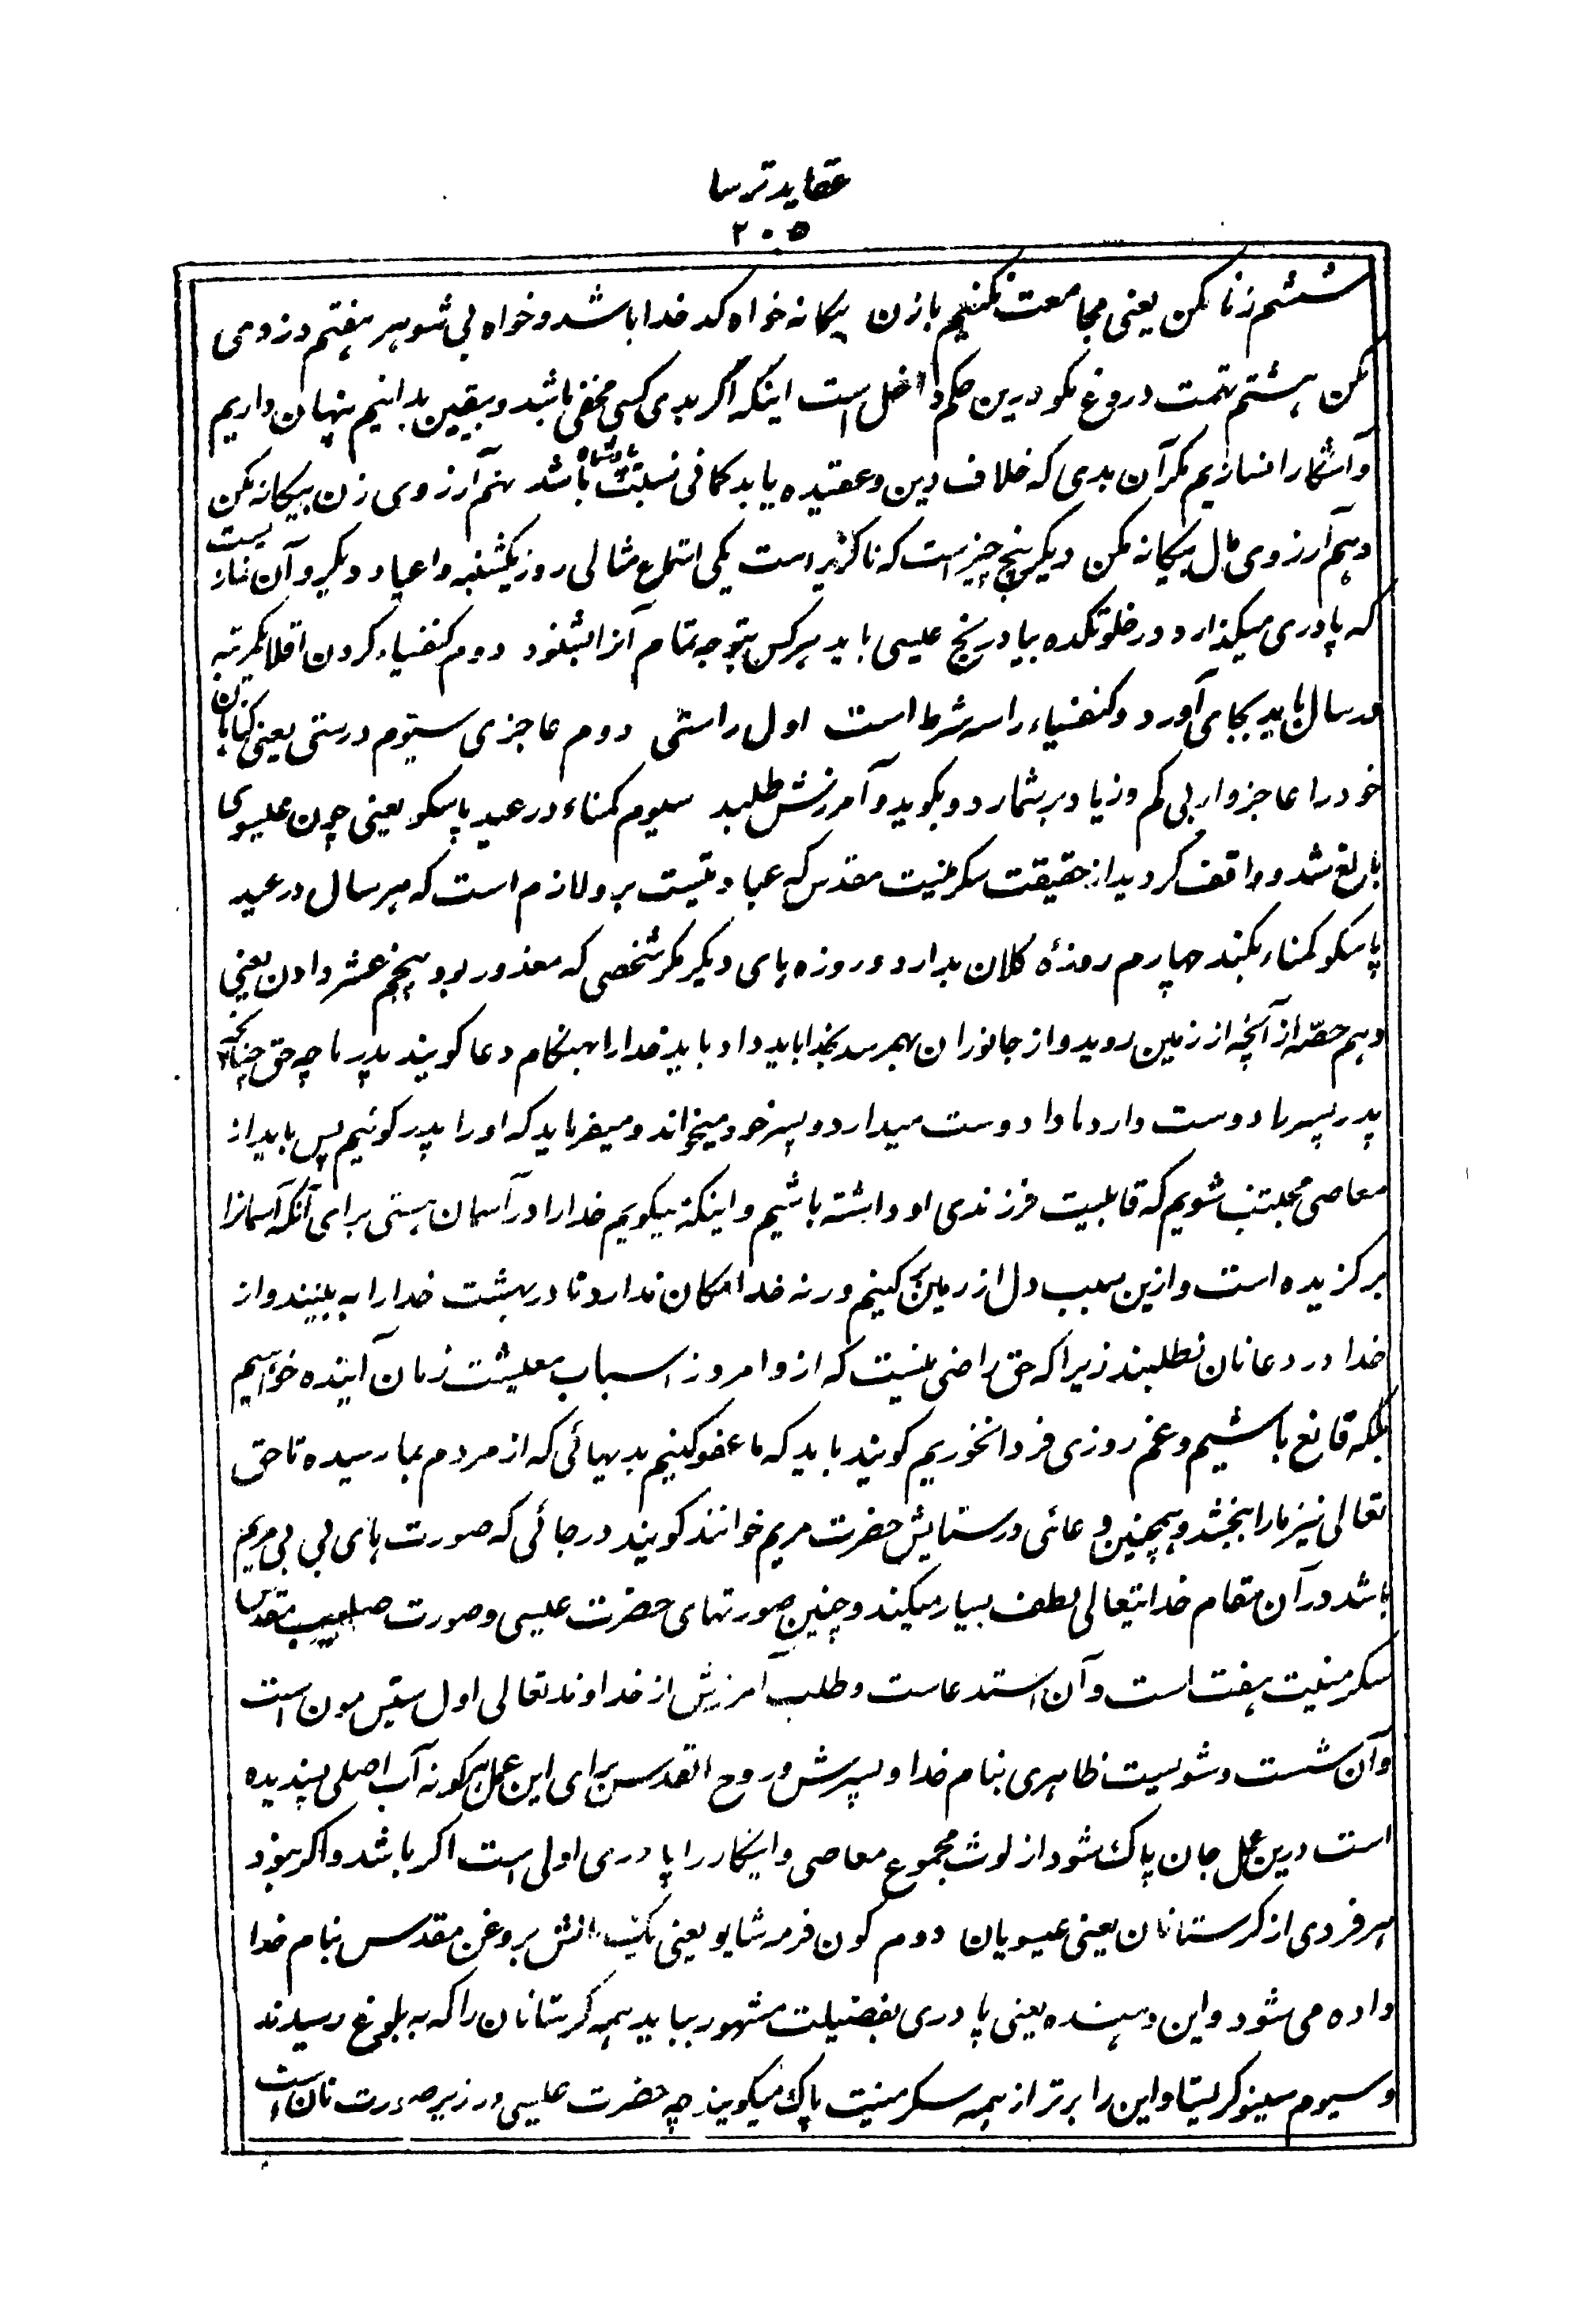 عقاید ترسا
۲۰۵
ششم زنا مکن یعنی مجامعت نکنیم با زن بیکانه خواه کد خدا باشد و خواه بی شوهر هفتم دزومی
مکن هشتم تهمت دروغ مکو درین حکم داخل است اینکه اگر بدی کسی مخفی باشد و بیقین بدانیم پنهان داریم
و آشکارا نسازیم مکر آن بدی که خلاف دین و عقیده یا بد کمانی نسبت بپادشاه باشد نهم آرزوی زن بیکانه مکن
دهم آرزوی مال بیکانه مکن دیکر پنج چیز است که ناکزیر است یکی استماع مثالی روز یکشنبه و اعیاد دیکر و آن نمازیست
که پادری میکذارد در خلوتکده بیاد رنج عیسی باید هر کس بتوجه تمام آنرا بشنود دوم کنفیاء کردن اقلا یکمرتبه
در سال باید بجای آورد و کنفیاء را سه شرط است اول راستی دوم عاجزی سیوم درستی یعنی کناهان
خود را عاجزوار بی کم و زیاد بر شمارد و بکوید و آمرزش طلبد سیوم کمناء در عید پاسکو یعنی چون عیسوی
بالغ شد و واقف کردید از حقیقت سکرمنیت مقدس که عبادتیست بر و لازم است که هر سال در عید
پاسکو کمناء بکند چهارم روزۀ کلان بدارد و روزه های دیکر مکر شخصی که معذور بود پنجم عشر دادن یعنی
دهم حصه از آنچه از زمین روید و از جانوران بهم رسد بخدا باید داد باید خدا را بهنکام دعا کویند پدر ما چه حق چنانکه
پدر پسر را دوست دارد ما را دوست میدارد و پسر خود میخواند و میفرماید که او را پدر کوئیم پس باید از
معاصی مجتنب شویم که قابلیت فرزندی او داشته باشیم و اینکه میکویم خدا را در آسمان هستی برای آنکه آسمانرا
بر کزیده است و ازین سبب دل از زمین بر کنیم ورنه خدا مکان ندارد تا در بهشت خدا را به بینند و از
خدا در دعا نان نطلبند زیرا که حق راضی نیست که از و امروز اسباب معیشت زمان آینده خواهیم
بلکه قانع باشیم و غم روزی فردا نخوریم کویند باید که ما عفو کنیم بدیهائی که از مردم بما رسیده تا حق
تعالی نیز ما را ببخشد و همچنین دعائی در ستایش حضرت مریم خوانند کویند در جائی که صورت های بی بی مریم
باشد در آن مقام خدایتعالی لطف بسیار میکند و چنین صورتهای حضرت عیسی و صورت صلیب مقدس
سکرمنیت هفت است و آن استدعاست و طلب آمرزش از خداوند تعالی اول بتیس مون است
و آن شست و شوییست ظاهری بنام خدا و پسرش و روح القدس برای این عمل هر کونه آب اصلی پسندیده
است درین عمل جان پاک شود از لوث مجموع معاصی و اینکار را پادری اولی است اکر باشد و اکر نبود
هر فردی از کرستانان یعنی عیسویان دوم کون فرمه شایو یعنی بروغن مقدس بنام خدا
داده می شود و این دهنده یعنی پادری بفضیلت مشهور بباید همه کرستانان را که به بلوغ رسیدند
و سیوم سینو کرلیتا و این را برتر از همه سکرمنیت پاک میکویند چه حضرت عیسی در زیر صورت نان است